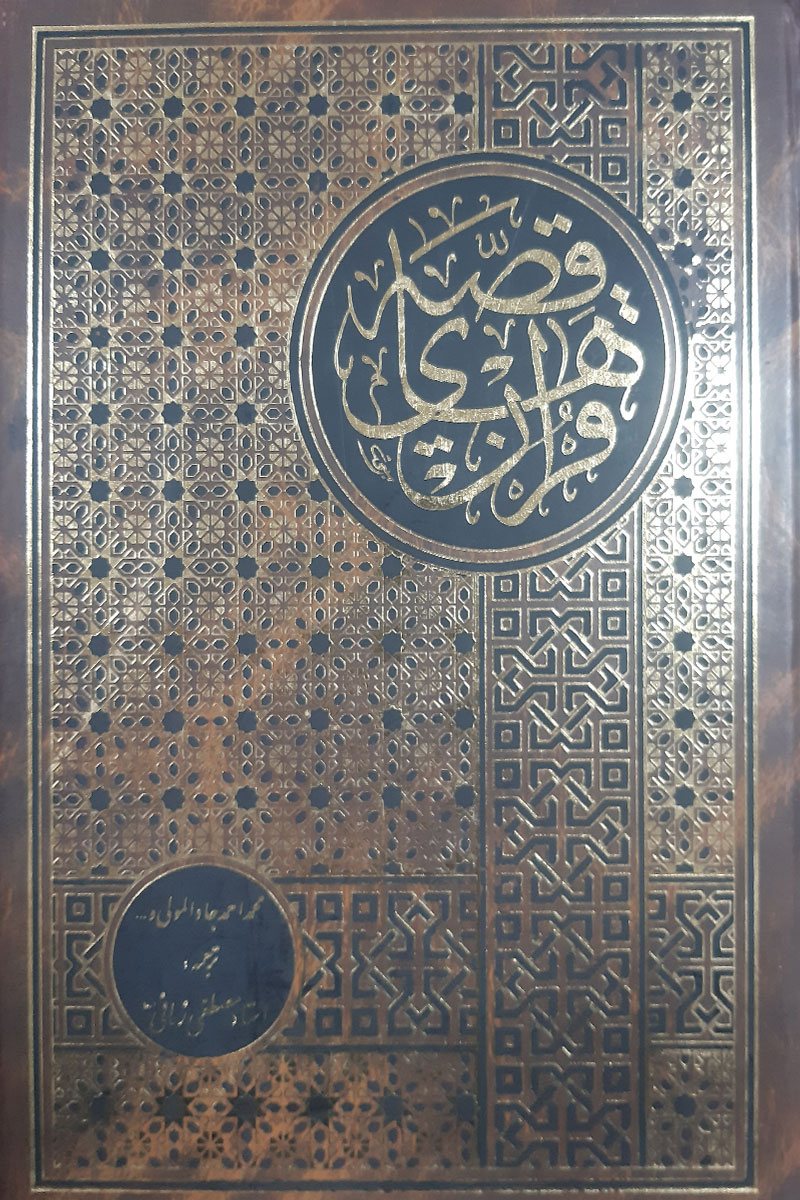 قصّه
های
قرآن
محمد احمد جاد المولی و...
ترجمه:
استاد مصطفی زمانی